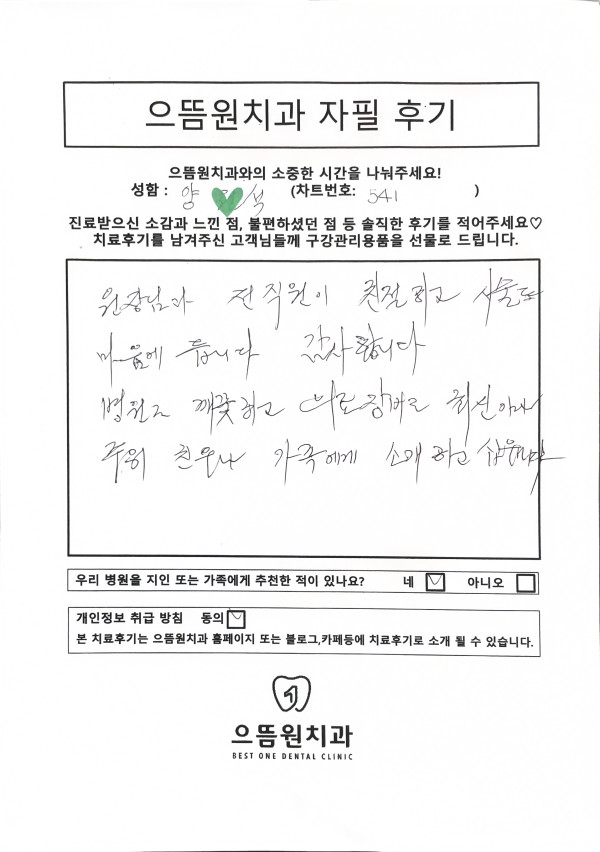 으뜸원치과 자필 후기
으뜸원치과와의 소중한 시간을 나눠주세요!
성함 : 양 석 (차트번호: 541 )
진료받으신 소감과 느낀 점, 불편하셨던 점 등 솔직한 후기를 적어주세요♡
치료후기를 남겨주신 고객님들께 구강관리용품을 선물로 드립니다.
원장님과 전직원이 친절하고 시술도
마음에 듭니다 감사합니다
병원도 깨끗하고 의료장비도 최신이라
주위 친우나 가족에게 소개하고 싶습니다
우리 병원을 지인 또는 가족에게 추천한 적이 있나요? 네 아니오
개인정보 취급 방침 동의
본 치료후기는 으뜸원치과 홈페이지 또는 블로그,카페등에 치료후기로 소개 될 수 있습니다.
1
으뜸원치과
BEST ONE DENTAL CLINIC